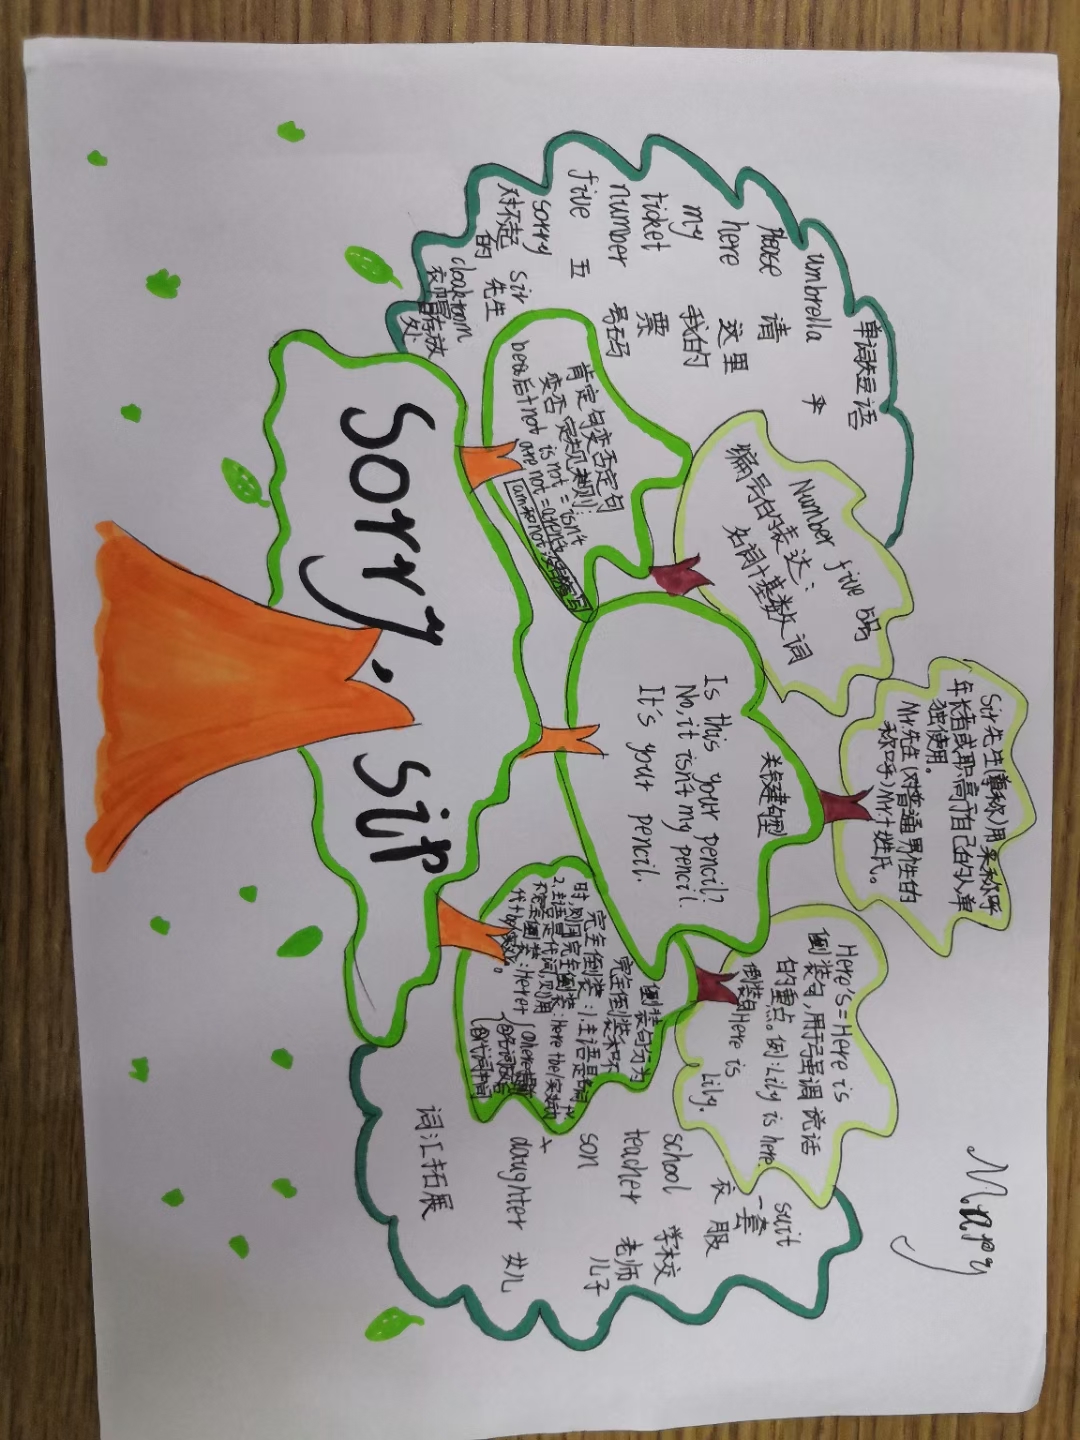 Mary
Sir先生(尊称)用来称呼
年长者或职高于自己的人单
独使用。
Mr.先生(对普通男性的
称呼)Mr.+姓氏。
单词短语
umbrella 伞
please 请
here 这里
my 我的
ticket 票
number 号码
five 五
sorry
对不起
的
sir
先生
cloakroom
衣帽存放
处
Number five 5号
编号的表达:
名词+基数词
肯定句变否定句
变否定规则:
be后+not is not = isn't
are not = aren't
am和not没有缩写
关键句型
Is this your pencil?
No, it isn't my pencil.
It's your pencil.
Here's = Here is
倒装句,用于强调说话
的重点。例:Lily is here.
倒装句Here is
Lily.
倒装句分为
完全倒装和不
完全倒装:1.主语是名词
时,则用完全倒装:
2.主语是代词,则用
不完全倒装:Here+
suit
一套
衣服
school 学校
teacher 老师
son 儿子
+
daughter 女儿
词汇拓展
Sorry. sir